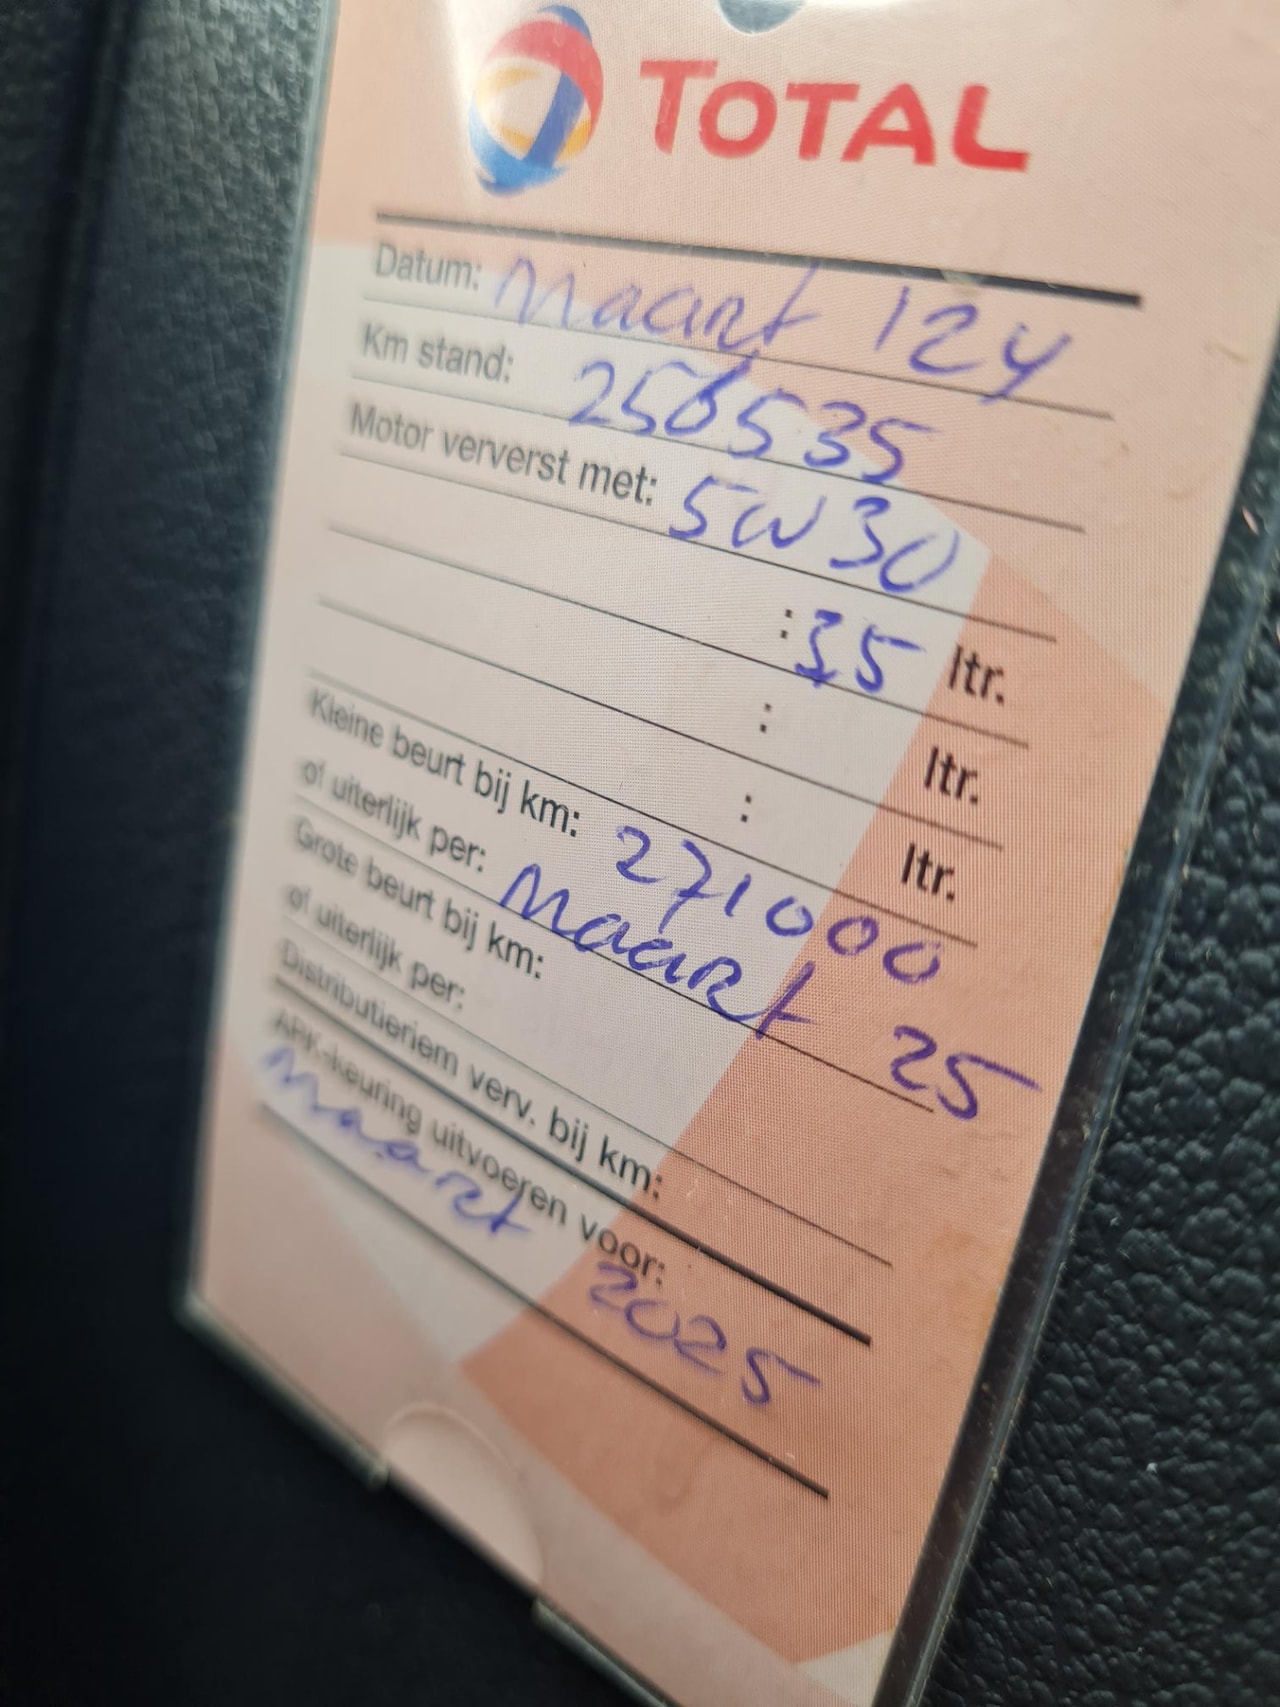 TOTAL
Datum: Maart 124
Km stand: 256535
Motor ververst met: 5W30
: 35 ltr.
: ltr.
: ltr.
Kleine beurt bij km: 271000
of uiterlijk per: Maart 25
Grote beurt bij km:
of uiterlijk per:
Distributieriem verv. bij km:
APK-keuring uitvoeren voor:
Maart 2025